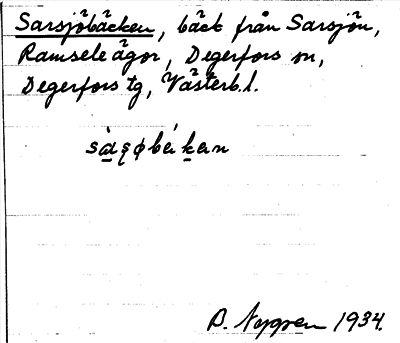 Sarsjöbäcken, bäck från Sarsjön,
Ramsele ägor, Degerfors sn,
Degerfors tg, Västerb.l.
B. Nygren 1934.